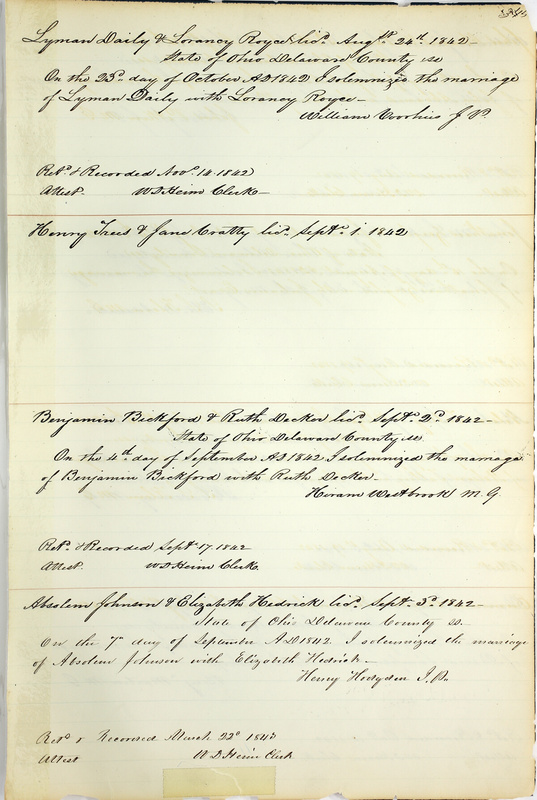 Lyman Daily & Lorancy Royce licd. Augst. 24th. 1842
State of Ohio Delaware County ss
On the 23d. day of October AD 1842 I solemnized the marriage
of Lyman Daily with Lorancy Royce
William Voorhis J P.
Retd. & Recorded Novr. 14. 1842
Attest. W D Heim Clerk
Henry Trees & Jane Cratty licd. Septr. 1. 1842
Benjamin Bickford & Ruth Decker licd. Septr. 2d. 1842
State of Ohio Delaware County ss
On the 4th. day of September AD 1842 I solemnized the marriage
of Benjamin Bickford with Ruth Decker
Hiram Westbrook M. G
Retd. & Recorded Sept. 17. 1842
Attest. W D Heim Clerk
Absolem Johnson & Elizabeth Hedrick licd. Sept. 3d. 1842
State of Ohio Delaware County ss.
On the 7th day of September A D 1842. I solemnized the marriage
of Absolem Johnson with Elizabeth Hedrick
Henry Hodgden J. P.
Retd & Recorded March 22d 1843
Attest W D Heim Clerk